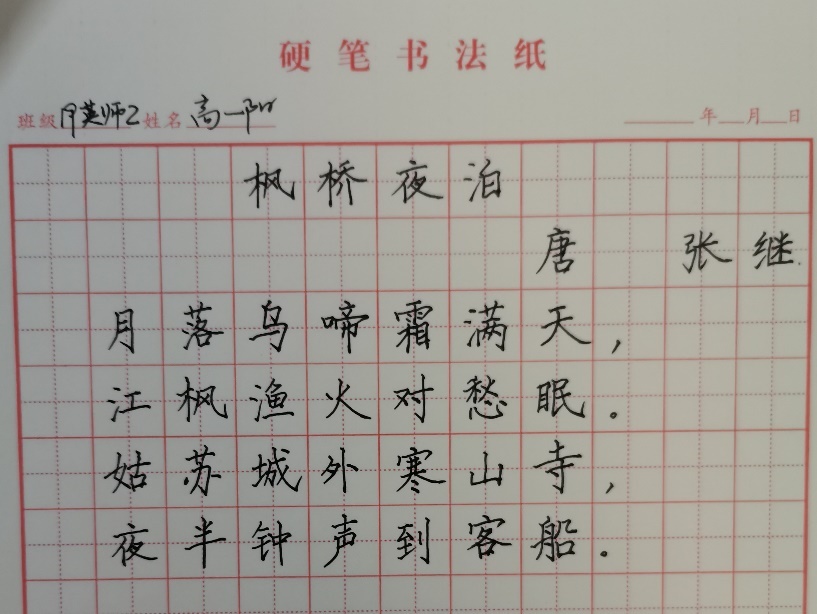 硬笔书法纸
班级 英师2 姓名 高一阳 年 月 日
枫桥夜泊
唐 张继
月落乌啼霜满天，
江枫渔火对愁眠。
姑苏城外寒山寺，
夜半钟声到客船。